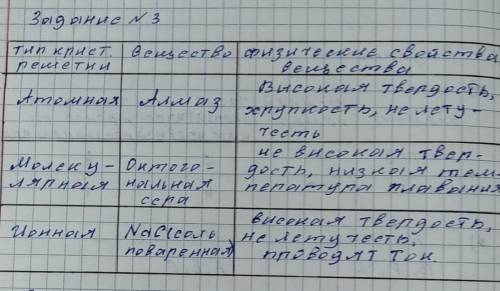 Задание №3
тип крист. решетки | Вещество | физические свойства вещества
Атомная | Алмаз | Высокая твердость, хрупкость, не лету-честь
Молеку-лярная | Октого-нальная сера | не высокая твер-дость, низкая тем-пература плавания
Ионная | NaCl соль поваренная | высокая твердость, не летучесть, проводят ток.